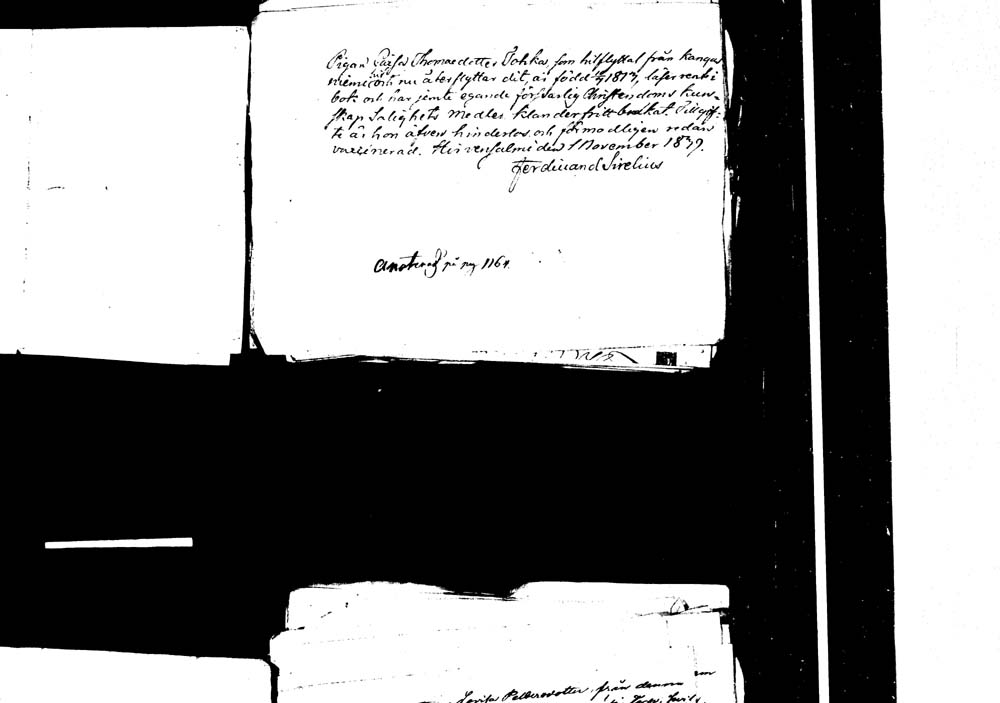 Pigan Lovisa Thomaedotter Tohka, som hitflyttat från Kangas
niemi och nu återflyttar dit, är född 1817, läser rent i
bok och har jemte egande försvarlig Christendoms kun-
skap Salighets Medlen klanderfritt brukat. Till gif-
te är hon äfven hinderlös och förmodligen redan
vaccinerad. Hirvensalmi den 1 November 1839.
Ferdinand Sirelius
på pag 1164.
från denna